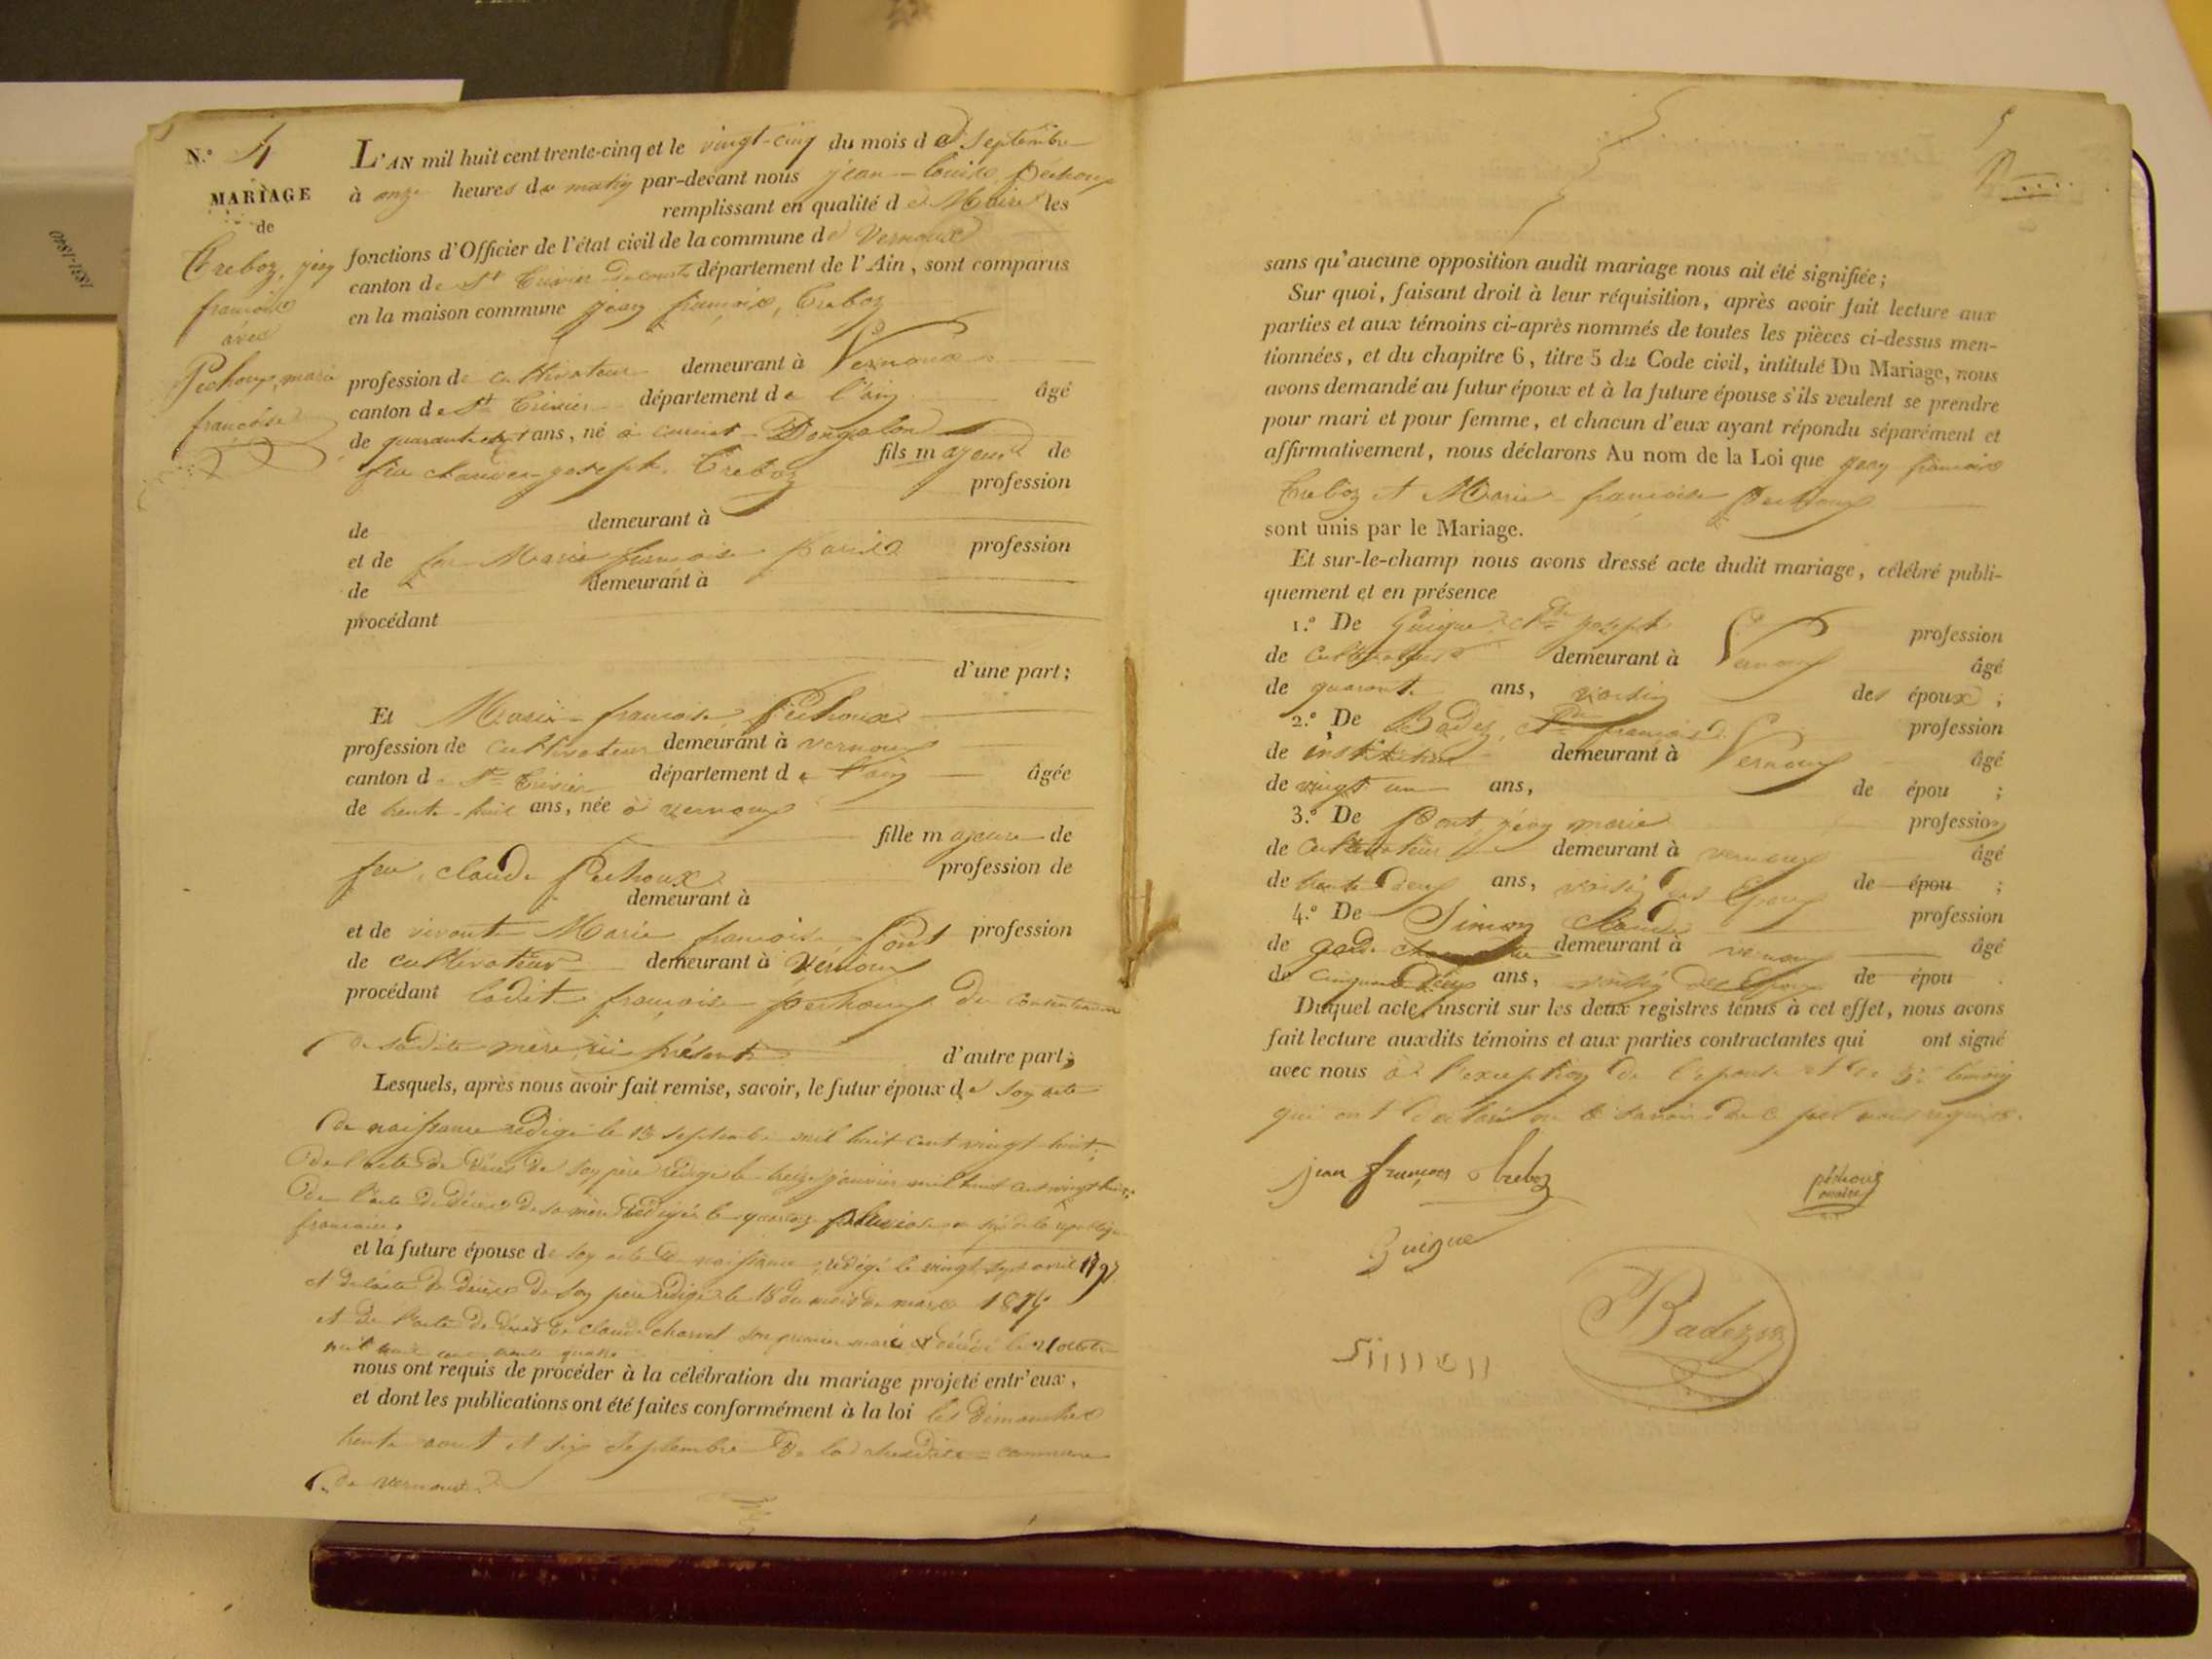 1831-1840
N.° 4
MARIAGE
de
Treboz, jean
françois
avec
Pechoux, marie
françoise
L'AN mil huit cent trente-cinq et le vingt-cinq du mois de Septembre
à onze heures du matin par-devant nous jean-louis Pechoux
remplissant en qualité de Maire les
fonctions d'Officier de l'état civil de la commune de Vernoux
canton de St Trivier de courtes département de l'Ain, sont comparus
en la maison commune jean françois, Treboz
profession de cultivateur demeurant à Vernoux
canton de St Trivier département de l'ain âgé
de quarante ans, né à curciat-Dongalon
fils majeur de
feu claude joseph Treboz profession
de demeurant à
et de Marie françoise profession
de demeurant à
procédant
d'une part;
Et Marie-françoise Pechoux
profession de cultivateur demeurant à vernoux
canton de St Trivier département de l'ain âgée
de trente-huit ans, née à vernoux
fille majeure de
feu claude Pechoux profession de
demeurant à
et de vivante Marie françoise Pont profession
de cultivateur demeurant à Vernoux
procédant ladite françoise pechoux du consentement
de sadite mère ici présente d'autre part;
Lesquels, après nous avoir fait remise, savoir, le futur époux de son acte
de naissance rédigé le 15 septembre mil huit cent vingt huit;
de l'acte de décès de son père rédigé le treize janvier mil huit cent vingt
de l'acte de décès de sa mère rédigé le pluviose an six de la république
française.
et la future épouse de son acte de naissance rédigé le vingt sept avril 1797
et de l'acte de décès de son père rédigé le 18 du mois de mars
et de l'acte de décès de claude charvet son premier mari décédé le 21 octobre
mil huit cent trente quatre
nous ont requis de procéder à la célébration du mariage projeté entr'eux,
et dont les publications ont été faites conformément à la loi les dimanches
trente aout et six septembre de la susdite commune
de vernoux
5
sans qu'aucune opposition audit mariage nous ait été signifiée;
Sur quoi, faisant droit à leur réquisition, après avoir fait lecture aux
parties et aux témoins ci-après nommés de toutes les pièces ci-dessus men-
tionnées, et du chapitre 6, titre 5 du Code civil, intitulé Du Mariage, nous
avons demandé au futur époux et à la future épouse s'ils veulent se prendre
pour mari et pour femme, et chacun d'eux ayant répondu séparément et
affirmativement, nous déclarons Au nom de la Loi que jean françois
Treboz et Marie françoise Pechoux
sont unis par le Mariage.
Et sur-le-champ nous avons dressé acte dudit mariage, célébré publi-
quement et en présence
1.° De Guigue joseph profession
de cultivateur demeurant à Vernoux âgé
de quarante ans, voisin des époux;
2.° De Badez françois profession
de instituteur demeurant à Vernoux âgé
de vingt un ans, de épou ;
3.° De Pont jean marie profession
de cultivateur demeurant à vernoux âgé
de trente deux ans, voisin des époux de épou ;
4.° De Simon Claude profession
de garde champêtre demeurant à vernoux âgé
de cinquante deux ans, voisin des époux de épou
Duquel acte, inscrit sur les deux registres tenus à cet effet, nous avons
fait lecture auxdits témoins et aux parties contractantes qui ont signé
avec nous à l'exception de l'epouse et de 3e témoin
qui ont déclaré ne le savoir de ce fait requis.
jean françois treboz
péchoux
maire
Guigue
Badez
Simon